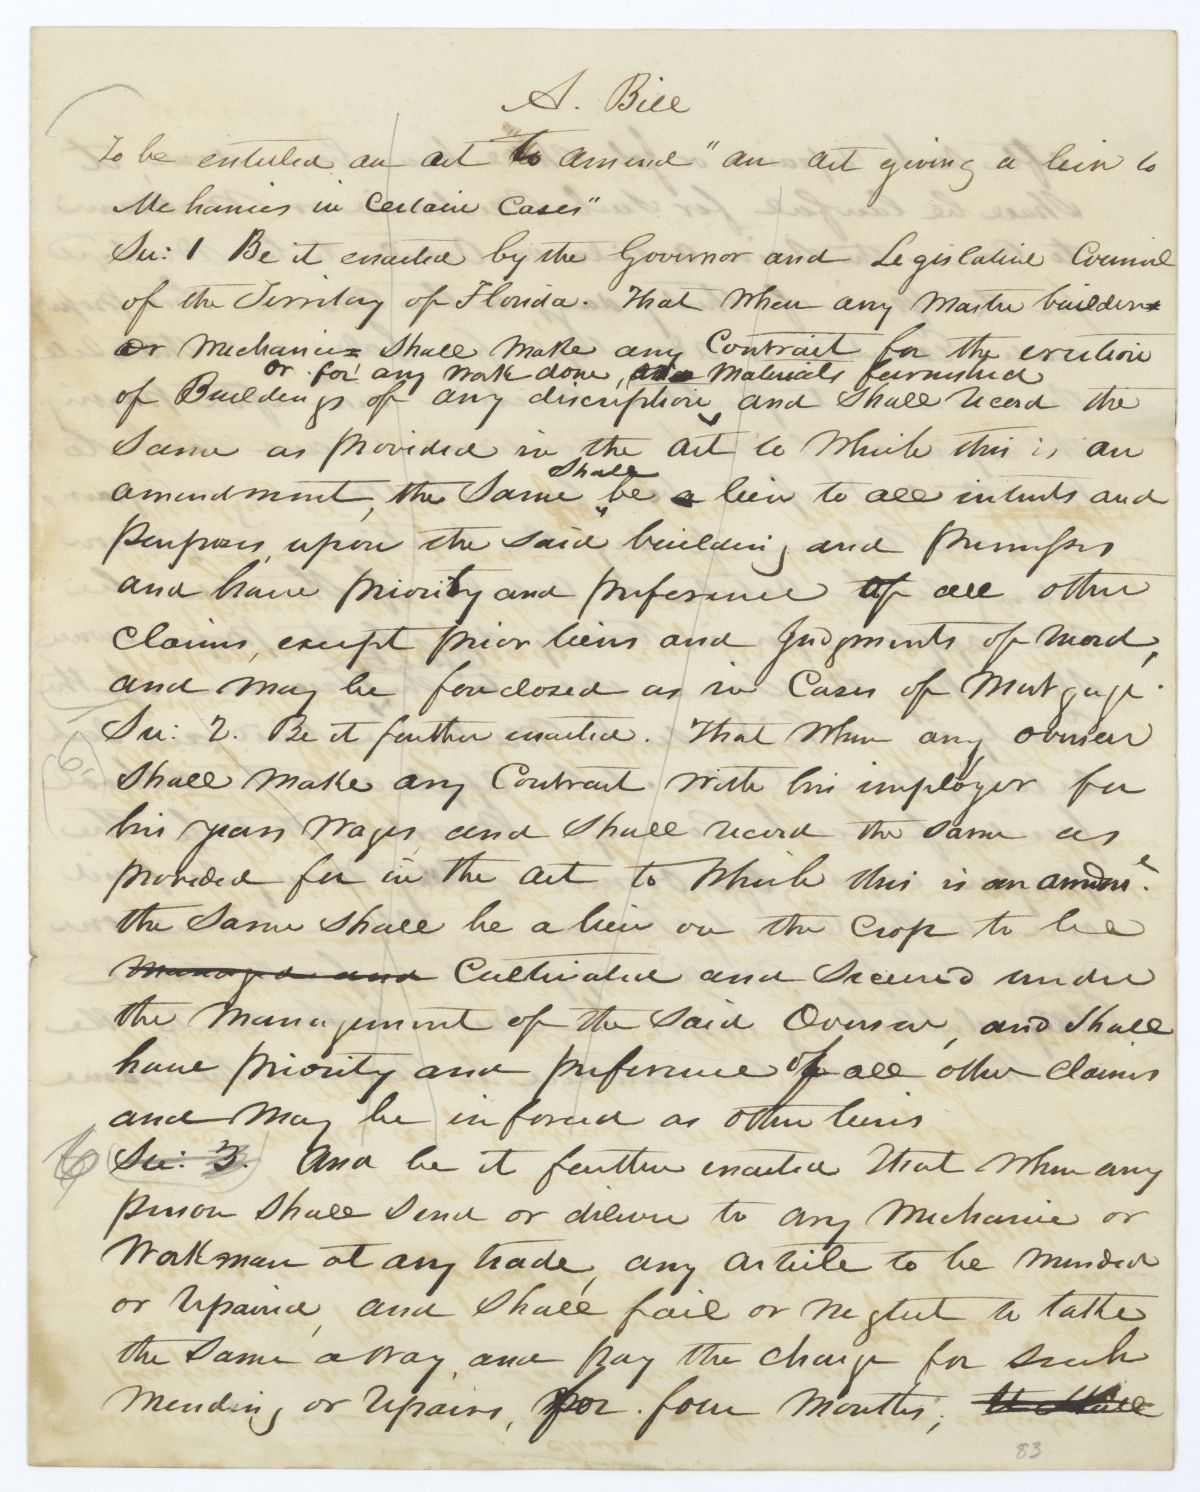 A. Bill
To be entitled an act "to amend "an act giving a lien to
Mechanics in Certain Cases"
Sec: 1 Be it enacted by the Governor and Legislative Council
of the Territory of Florida. That when any Master builder
or Mechanic shall make any Contract for the erection
or for any work done, Materials furnished
of Buildings of any discription, and shall record the
same as provided in the act to which this is an
amendment, the same shall be a lien to all intents and
purposes, upon the said building and premises
and have priority and preference of all other
claims, except prior liens and Judgments of record,
and may be foreclosed as in Cases of Mortgage.
Sec: 2. Be it further enacted. That when any overseer
shall make any Contract with his employer for
his years wages, and shall record the same as
provided for in the act to which this is an amdmt.
the same shall be a lien on the Crop to be
Managed and Cultivated and Secured under
the Management of the said Overseer, and shall
have priority and preference of all other claims
and may be inforced as other liens
6 Sec: 3. And be it further enacted That when any
person shall send or deliver to any Mechanic or
Workman at any trade, any article to be mended
or repaired, and shall fail or neglect to take
the same away, and pay the charge for such
mending or repairs, for four months, it shall
83